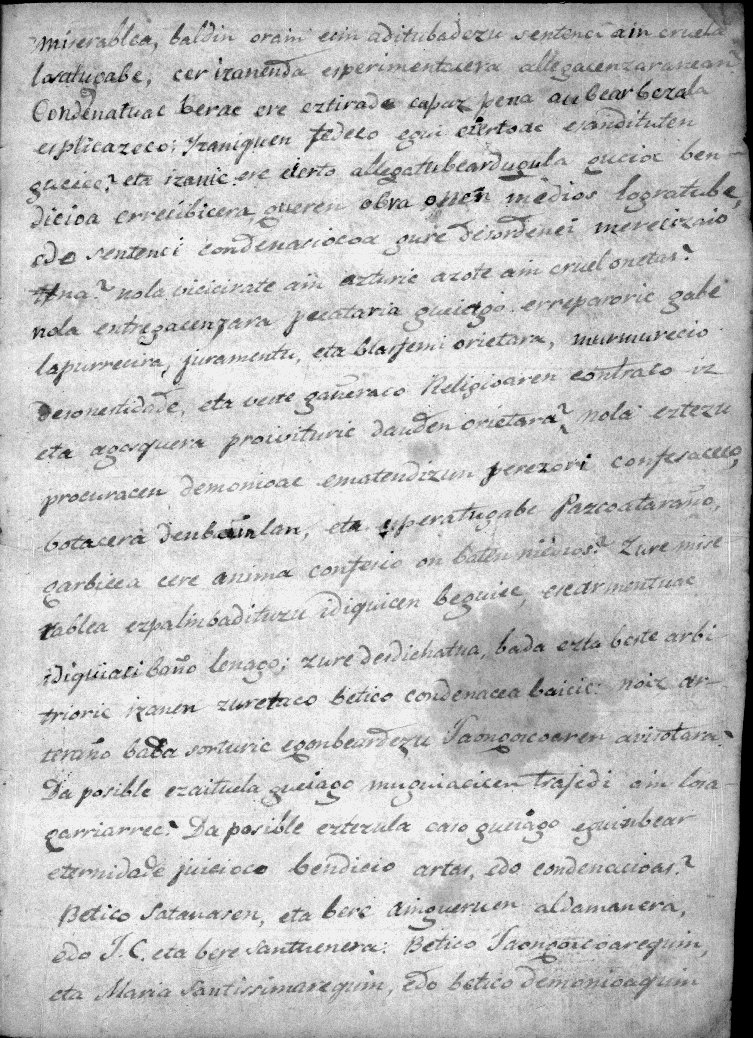 miserablea, baldin orain ecin aditubadezu sentenci ain cruela
lasatugabe, cer izanenda esperimentacera allegacenzaranean?
Condenatuac berac ere eztirade capaz pena au bear bezala
esplicazeco: Izaniquen fedeco egui ciertoac esandituten
guciec? eta izanic ere cierto allegatubeardugula gucioc ben-
dicioa errecibicera gueren obra onen medios logratube,
edo sentenci condenaciocoa gure desordenei merecizaio
tena? nola vicicirate ain azturic azote ain cruel onetas?
nola entregacenzara pecataria gueiago erreparoric gabe
lapurrecira, juramentu, eta blasfemi orietara, murmurecio
desonestidade, eta veste gañeraco Religioaren contraco iz
eta agerquera provisturic dauden orietara? nola eztezu
procuracen demonioac ematendizun perezori confesaceco,
botacera denbañalan, eta esperatugabe Pazcoataraño,
garbicea cere anima confesio on baten medios? Zure mise
rablea ezpalinbadituzu idiquicen beguiec, escarmentuac
idiquiaci baño lenago; zure desdichatua, bada ezta beste arbi-
trioric izanen zuretaco betico condenacea baicic: noiz ar-
teraño bada sorturic egonbeardezu Jaongoicoaren avisotara?
Da posible ezaituela gueiago muguiacicen trajedi ain lasa-
garriarrec? Da posible eztezula caso gueiago eguinbear
eternidade juicioco bendicio artas, edo condenacioas?
Betico Satanasen, eta bere aingueruen aldamanera,
edo J.C. eta bere santuenera: Betico Jaongoicoarequin,
eta Maria Santissimarequin, edo betico demonioaquin